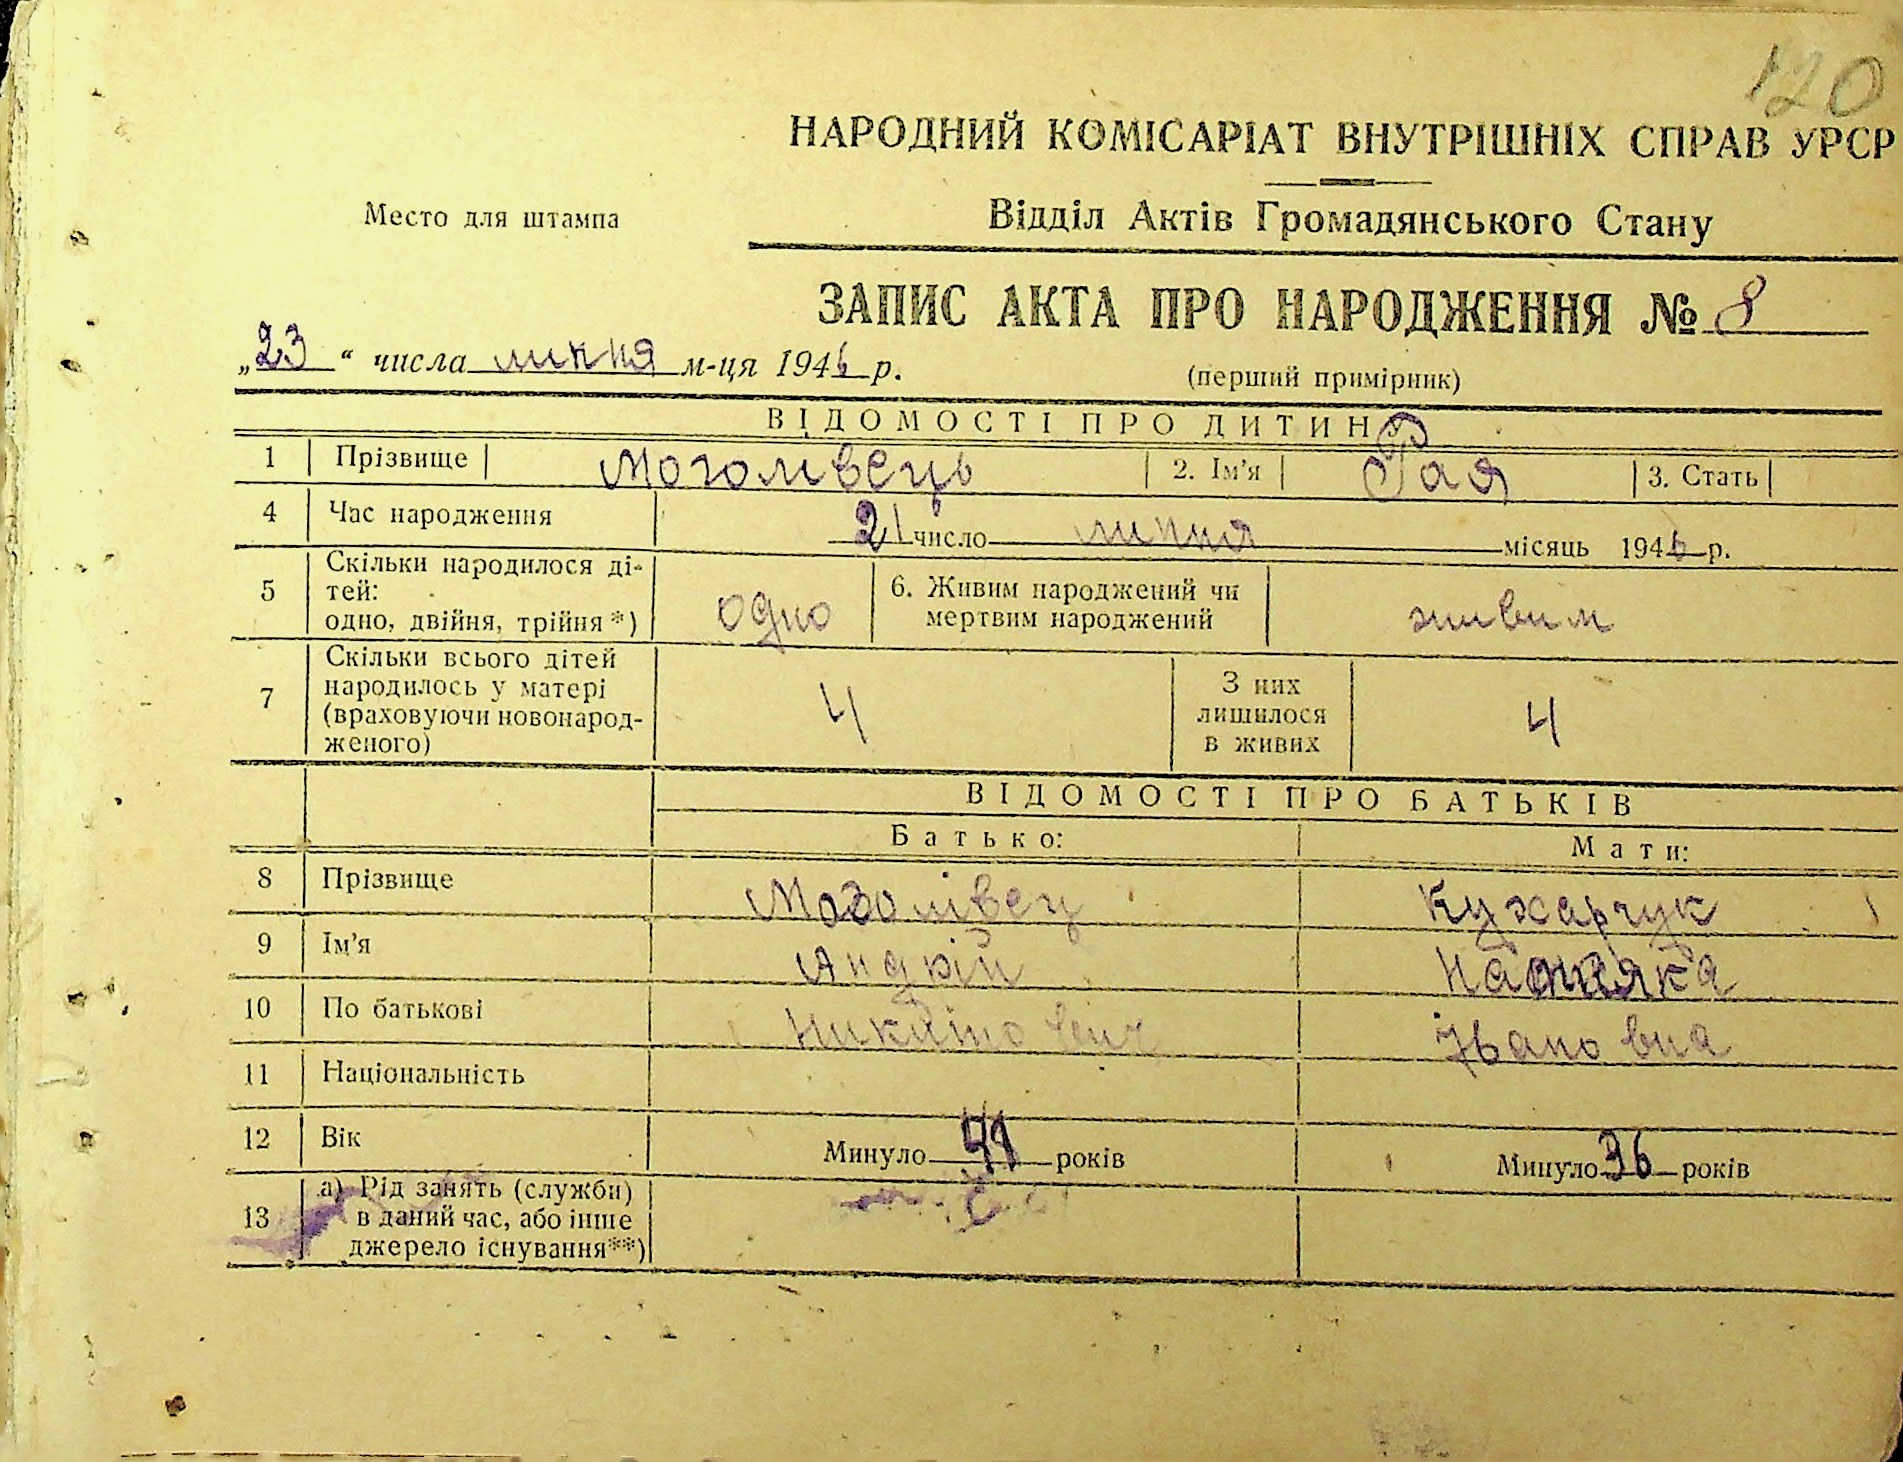 120
НАРОДНИЙ КОМІСАРІАТ ВНУТРІШНІХ СПРАВ УРСР
Место для штампа
Відділ Актів Громадянського Стану
ЗАПИС АКТА ПРО НАРОДЖЕННЯ № 8
„23“ числа липня м-ця 1946 р.
(перший примірник)
ВІДОМОСТІ ПРО ДИТИНУ
1 Прізвище Моголівець 2. Ім'я Рая 3. Стать
4 Час народження 21 число липня місяць 1946 р.
5 Скільки народилося ді-
тей:
одно, двійня, трійня*) одно 6. Живим народжений чи
мертвим народжений живим
7 Скільки всього дітей
народилось у матері
(враховуючи новонарод-
женого) 4 З них
лишилося
в живих 4
ВІДОМОСТІ ПРО БАТЬКІВ
Батько: Мати:
8 Прізвище Моголівец Кухарчук
9 Ім'я Андрій
10 По батькові Івановна
11 Національність
12 Вік Минуло 41 років Минуло 36 років
13 а) Рід занять (служби)
в даний час, або інше
джерело існування**)